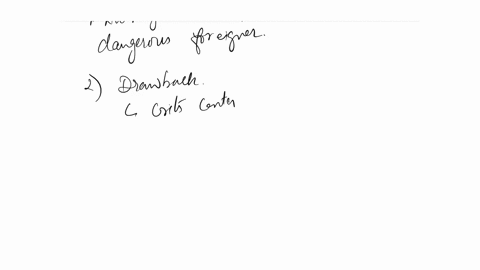 dangerous foreigner.
2) Drawback.
↳ Costs center